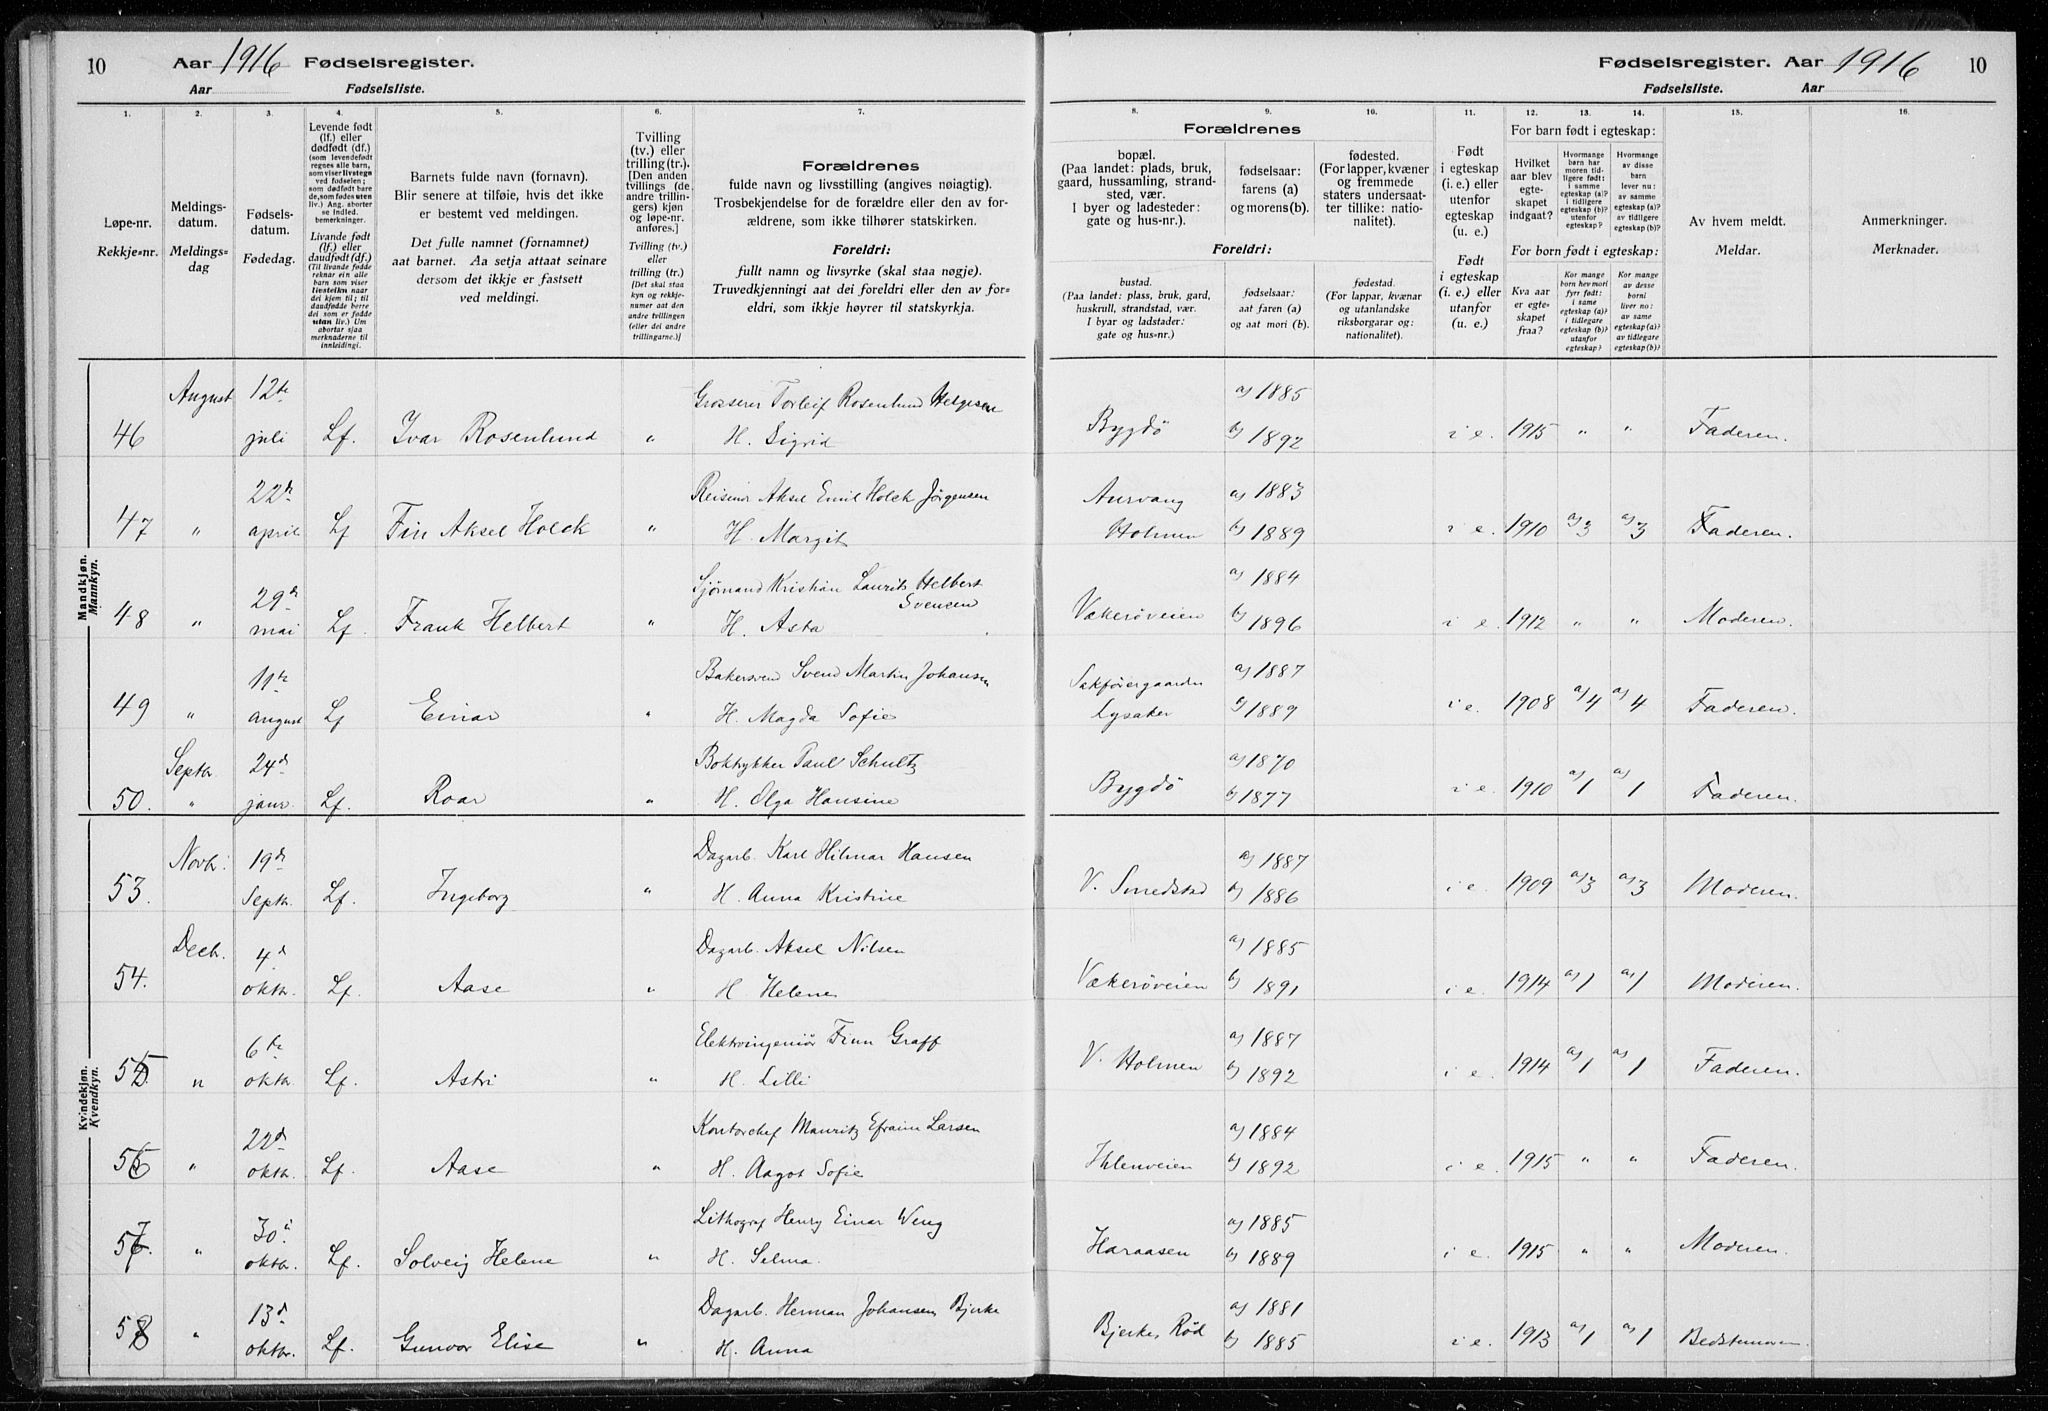 10 Aar 1916 Fødselsregister.
Aar Fødselsliste.
Fødselsregister. Aar 1916 10
Fødselsliste. Aar
1. 2. 3. 4. 5. 6. 7.
8. 9. 10. 11. 12. 13. 14. 15. 16.
Løpe-nr.
Rekkje-nr.
Meldings-
datum.
Meldings-
dag
Fødsels-
datum.
Fødedag.
Levende født
(lf.) eller
dødfødt (df.)
(som levendefødt
regnes alle barn,
som viser livstegn
ved fødselen;
som dødfødt bare
de, som fødes uten
liv.) Ang. aborter
se indled.
bemerkninger.
Livande født
(lf.) eller
daudfødt (df.)
(Til livande fødde
reknar ein alle
barn som viser
livsteikn naar
dei kjem til; til
daudfødde berre
dei som er fødde
utan liv.) Um
abortar sjaa
merknaderne til
innleidingi.
Barnets fulde navn (fornavn).
Blir senere at tilføie, hvis det ikke
er bestemt ved meldingen.
Det fulle namnet (fornamnet)
aat barnet. Aa setja attaat seinare
dersom det ikkje er fastsett
ved meldingi.
Tvilling
(tv.) eller
trilling (tr.).
[Den anden
tvillings (de
andre trillin-
gers) kjøn
og løpe-nr.
anføres.]
Tvilling (tv.)
eller
trilling (tr.)
[Det skal staa
kyn og rekkje-
numer aat den
andre tvillingen
(eller dei andre
trillingarne.)]
Forældrenes
fulde navn og livsstilling (angives nøiagtig).
Trosbekjendelse for de forældre eller den av for-
ældrene, som ikke tilhører statskirken.
Foreldri:
fullt namn og livsyrke (skal staa nøgje).
Truvedkjenningi aat dei foreldri eller den av for-
eldri, som ikkje høyrer til statskyrkja.
Forældrenes
bopæl.
(Paa landet: plads, bruk,
gaard, hussamling, strand-
sted, vær.
I byer og ladesteder:
gate og hus-nr.).
fødselsaar:
farens (a)
og morens (b).
fødested.
(For lapper, kvæner
og fremmede
staters undersaat-
ter tillike: natio-
nalitet).
Foreldri:
bustad.
(Paa landet: plass, bruk, gard,
huskrull, strandstad, vær.
I byar og ladstader:
gate og hus-nr.)
fødselsaar:
aat faren (a)
og aat mori (b).
fødestad.
(For lappar, kvænar
og utanlandske
riksborgarar og:
nationalitet).
Født
i egteskap
(i. e.) eller
utenfor
egteskap
(u. e.).
Født
i egteskap
(i. e.) eller
utanfor
(u. e.).
For barn født i egteskap:
Hvilket
aar blev
egte-
skapet
indgaat?
Hvormange
barn har
moren tid-
ligere født:
i samme
egteskap (a)?
i tidligere
egteskap (b)?
utenfor
egteskap?
Hvormange
av disse
barn
lever nu:
av samme
egteskap (a)?
av tidligere
egteskap (b)?
For born født i egteskap:
Kva aar
er egte-
skapet
fraa?
Kor mange
born hev mori
fyrr født:
i same
egteskap (a)?
i tidlegare
egteskap (b)?
utanfor
egteskap?
Kor mange
av desse
borni
liver no:
av same
egteskap (a)?
av tidlegare
egteskap (b)?
Av hvem meldt.
Meldar.
Anmerkninger.
Merknader.
Mandkjøn.
Mannkyn.
46 August 12te juli Lf. Ivar Rosenlund " Grosserer Torleif Rosenlund Helgesen H. Sigrid Bygdö a) 1885 b) 1892 i e. 1915 " " Faderen.
47 " 22de april Lf Fin Aksel Holck " Reisende Aksel Emil Holck Jørgensen H. Margit Aurvang Holmen a) 1883 b) 1889 i e. 1910 a) 3 a) 3 Faderen.
48 " 29de mai Lf. Frank Helbert " Sjømand Kristian Laurits Helbert Svensen H. Asta Vækerøveien a) 1884 b) 1896 i e. 1912 " " Moderen.
49 " 11te august Lf Einar " Bakersvend Svend Martin Johansen H. Magda Sofie Sakførergaarden Lysaker a) 1887 b) 1889 i e. 1908 a) 4 a) 4 Faderen.
50. Septbr " 24d janr. Lf. Roar " Boktrykker Paul Schultz H. Olga Hansine Bygdö a) 1870 b) 1877 i e. 1910 a) 1 a) 1 Faderen.
Kvindekjøn.
Kvendkyn.
53. Novbr. 19de Septbr. Lf. Ingeborg " Dagarb. Karl Hilmar Hansen H. Anna Kristine V. Smedstad a) 1887 b) 1886 i e. 1909 a) 3 a) 3 Moderen.
54. Decbr. 4d oktbr. Lf. Aase " Dagarb. Aksel Nilsen H. Helene Vækerøveien a) 1885 b) 1891 i e. 1914 a) 1 a) 1 Moderen.
55. " 6te oktbr. Lf. Astri " Elektroingeniør Finn Graff H. Lilli V. Holmen a) 1887 b) 1892 i e. 1914 a) 1 a) 1 Faderen.
56 " 22d oktbr. Lf. Aase " Kontorchef Mauritz Efraim Larsen H. Aagot Sofie Ihlenveien a) 1884 b) 1892 i e. 1915 " " Faderen.
57. " 30d oktbr. Lf. Solveig Helene " Lithograf Henry Einar Weng H. Selma. Haraasen a) 1885 b) 1889 i e. 1915 " " Moderen.
58 " 13d oktbr. Lf. Gunvor Elise " Dagarb. Herman Johansen Bjerke H. Anna Bjerke, Röd a) 1881 b) 1885 i e. 1913 a) 1 a) 1 Bedstemoren